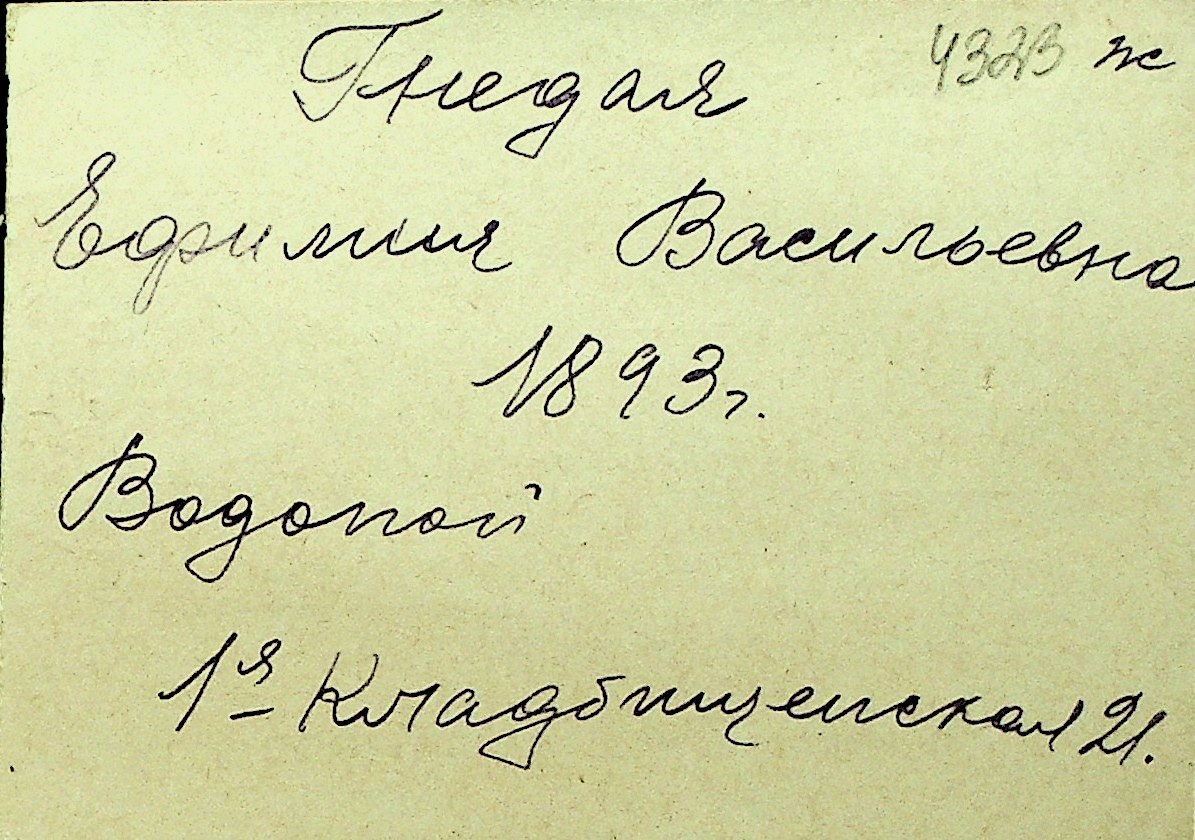 4323 ж
Гнедая
Ефимия Васильевна
1893г.
Водопой
1я Кладбищенская 21.